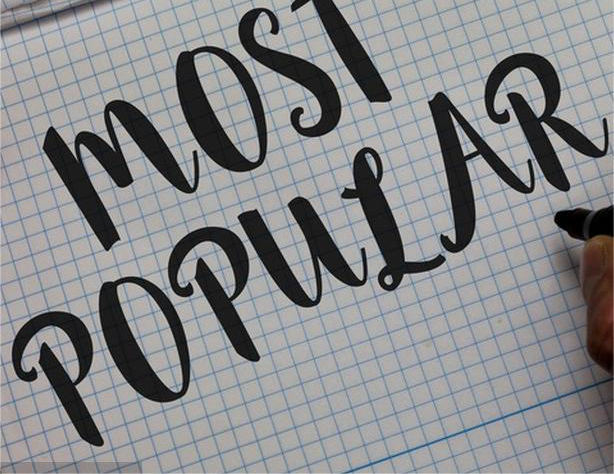 MOST
POPULAR